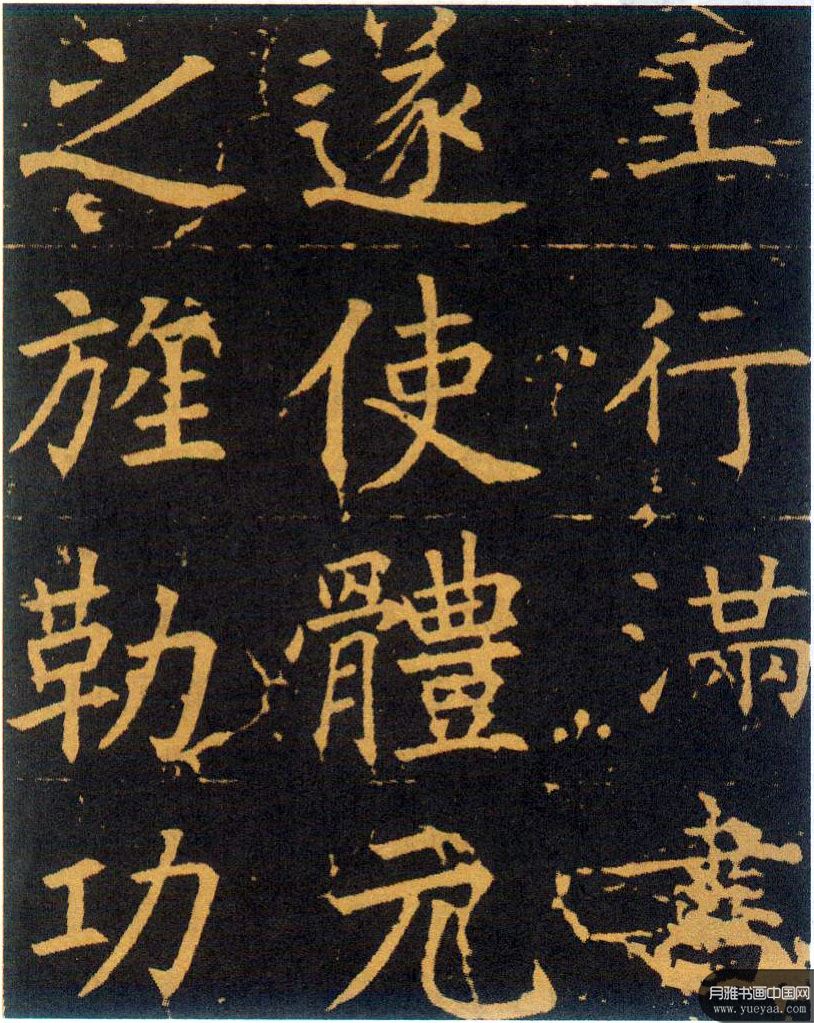 王行滿書
遂使體元
之旌勒功
月雅书画中国网
www.yueyaa.com